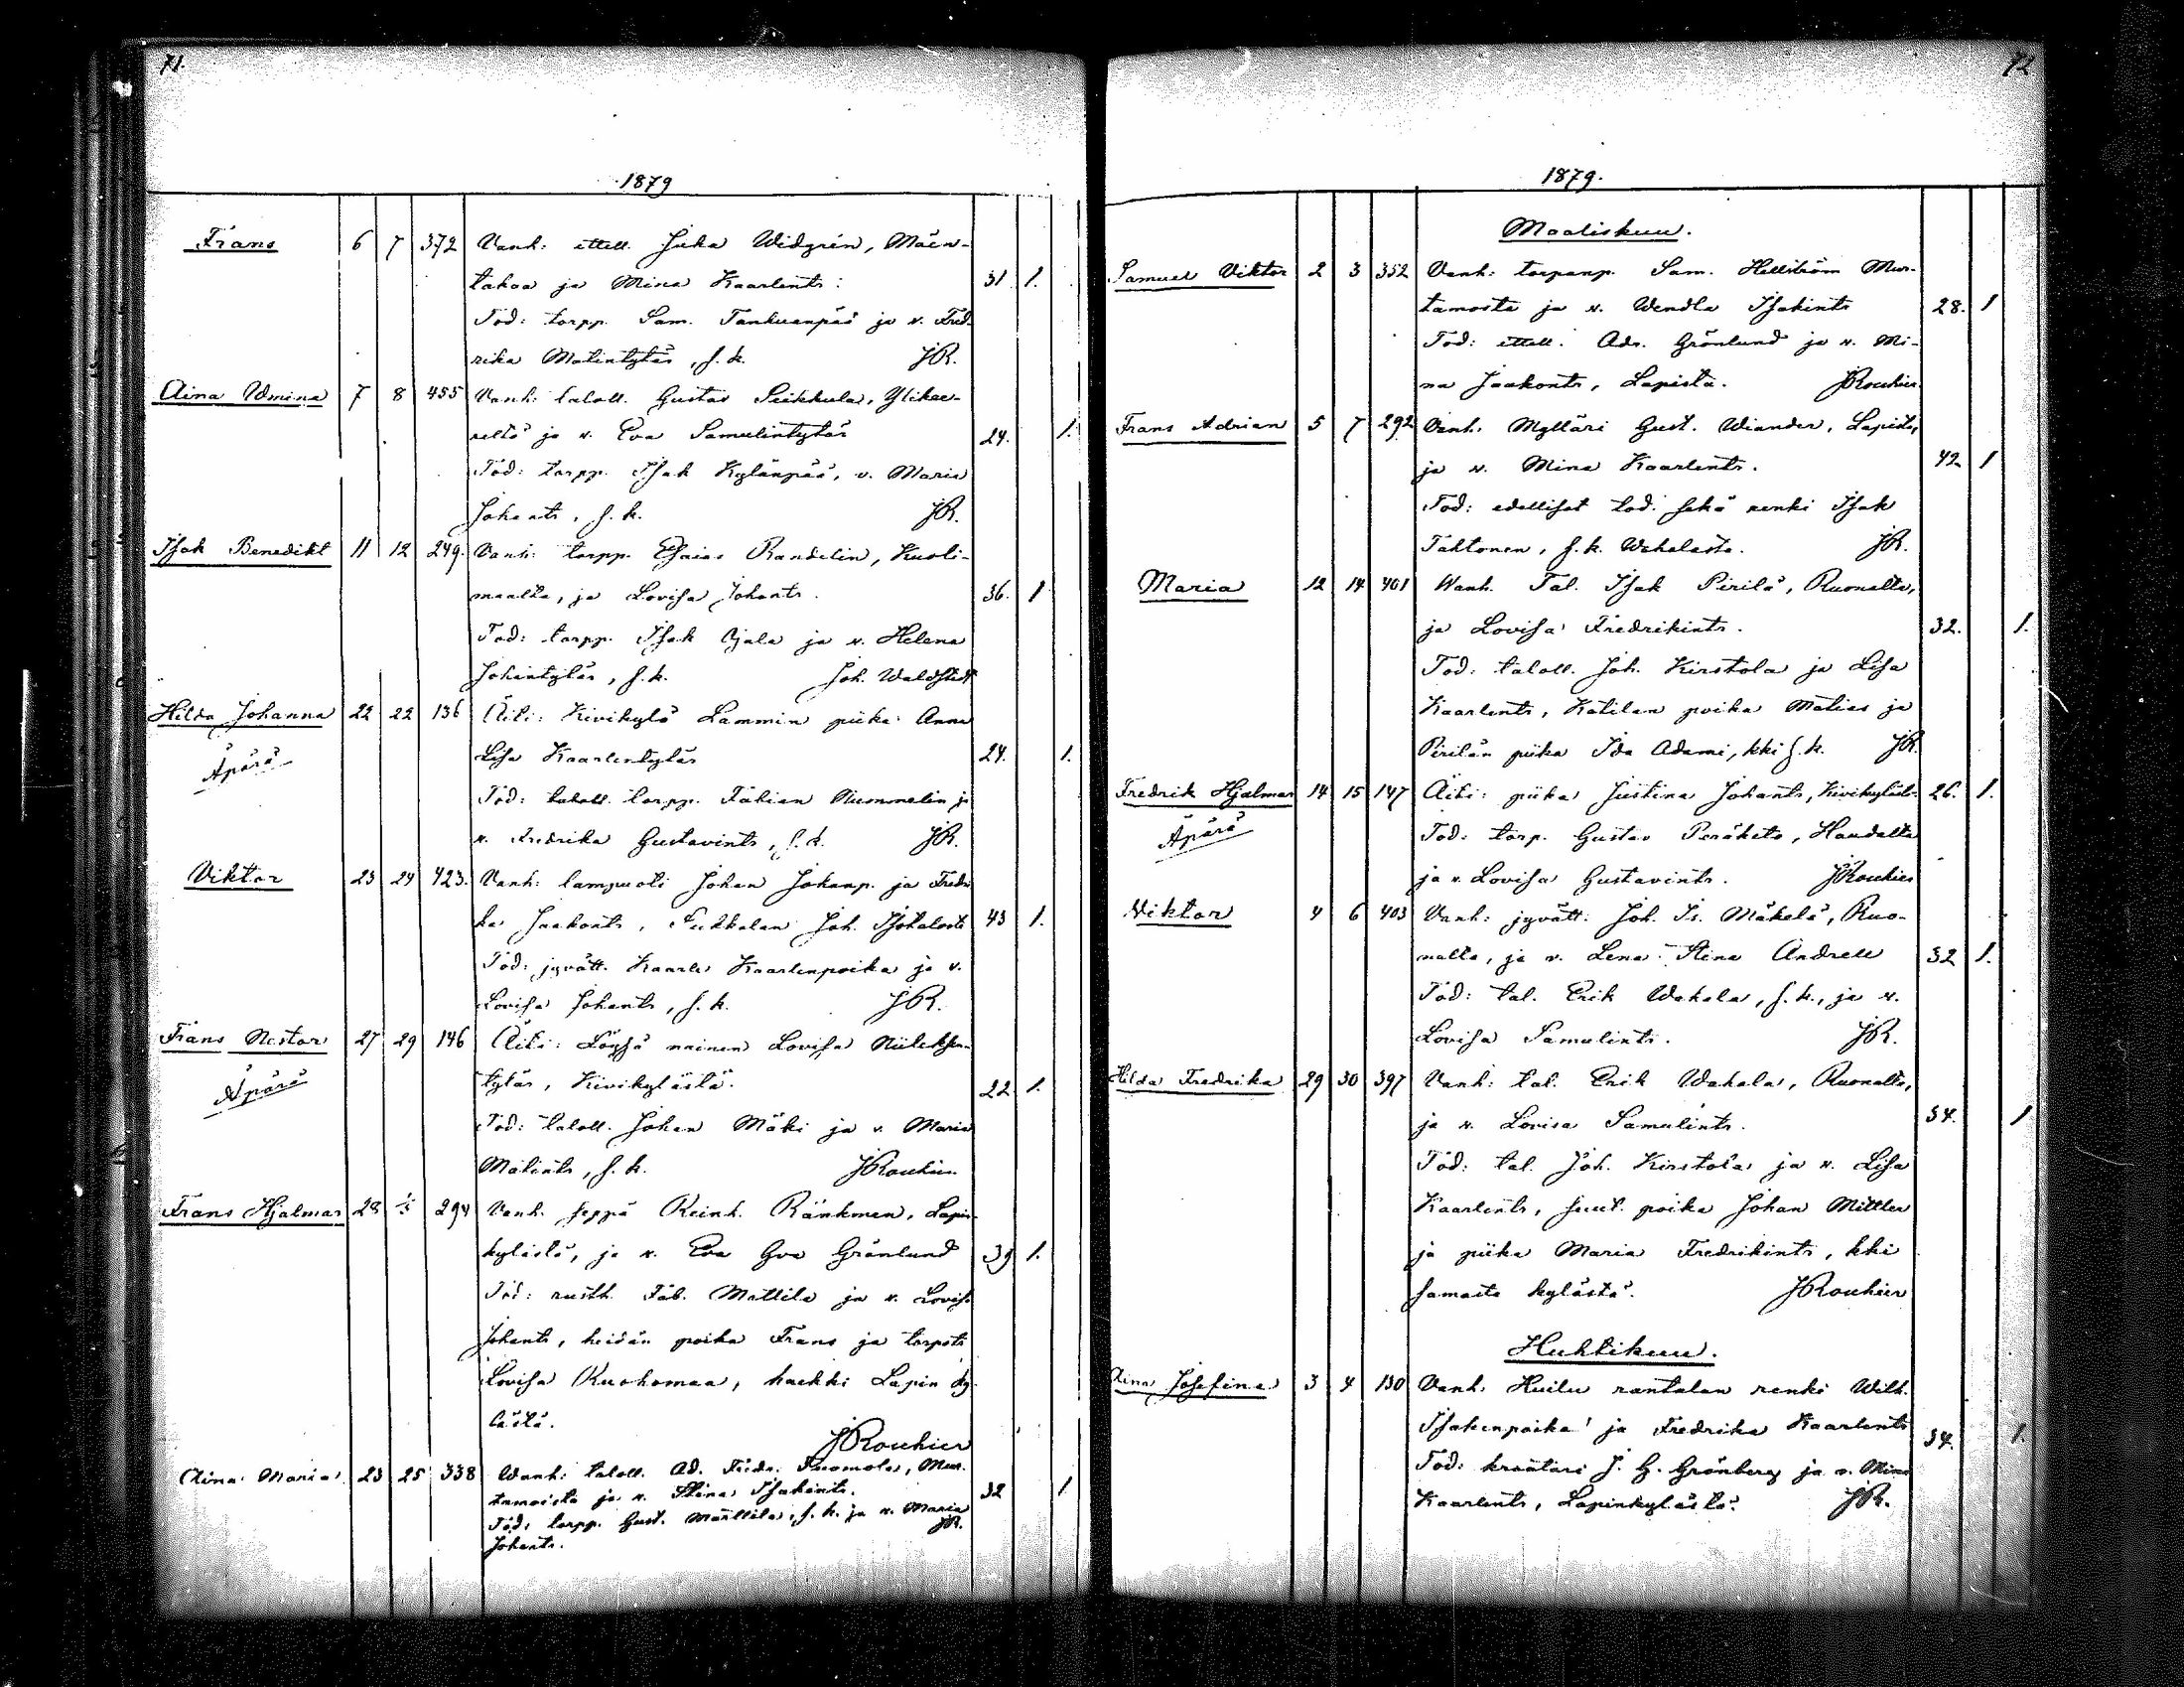 71.
1879
Frans 6 7 372 Vanh: ittell. Juka Widgrén, Mäen-
takaa ja Mina Kaarlents: 31. 1.
Tod: torpp. Sam. Tankuanpää ja v. Fred-
rika Matintytär, s. k. JR.
Aina 7 8 455 Vanh: taloll. Gustav Seikkula, Ylikee-
reltä ja v. Eva Samulintytär 24. 1.
Tod: torpp. Isak Kylänpää, v. Maria
Johants, s. k. JR.
Isak Benedikt 11 12 249. Vanh: torpp. Esaias Randelin, Kuoli-
maalta, ja Lovisa Johants. 36. 1
Tod: torpp. Isak Ojala ja v. Helena
s. k. Joh. Waldstedt
Hilda Johanna 22 22 136 Äiti: Kivikylä Lammin piika Anna
Äpärä Lisa Kaarlentytär 24. 1.
Tod: taloll. torpp. Fabian Nummelin ja
v. Fredrika Gustavints, s. k. JR.
Viktor 23 24 423. Vanh: lampuoti Johan Johanp. ja Fredri-
ka Jaakonts, Joh. 43 1.
Tod: jyvätt. Kaarle Kaarlenpoika ja v.
Lovisa Johants, s. k. JR.
Frans Nestor 27 29 146 Äiti: Löysä nainen Lovisa Niileksen-
Äpärä tytär, Kivikylästä. 22 1.
Tod: taloll. Johan Mäki ja v. Maria
Matints, s. k. JRouhier
Frans Hjalmar 28 1/3 294 Vanh. seppä Reinh. Ränkman, Lapin-
kylästä, ja v. Eva Gva Grönlund 39 1.
Tod: rusth. Fab. Mattila ja v. Lovisa
Johants, heidän poika Frans ja torpp.
Lovisa Ruohomaa, kaikki Lapin ky-
lästä.
JRouhier
Aina Maria 23 25 338 Wanh: taloll. Ad. Fredr. Tuomola, Mur-
tamoista ja v. Stina Isakints. 32 1
Tod: torpp. Gust. Mänttila, s. k. ja v. Maria
Johants. JR.
72
1879.
Maaliskuu.
Samuel Viktor 2 3 352 Vanh: torpanp. Sam. Hellström Mur-
tamosta ja v. Wendla Isakints 28. 1
Tod: ittell. Adr. Grönlund ja v. Mi-
na Jaakonts, Lapista. JRouhier
Frans Adrian 5 7 292 Vanh. Mylläri Gust. Wiander, Lapista,
ja v. Mina Kaarlents. 42 1
Tod: edelliset tod. sekä renki Isak
Tahtonen, s. k. Wahalasta. JR.
Maria 12 14 401 Wanh. Tal. Isak Pirilä, Ruonalta,
ja Lovisa Fredrikints. 32. 1.
Tod: taloll. Joh. Kirstola ja Lisa
Kaarlents, Kätilän poika Matias ja
Pirilän piika Ida Adami, kki s. k. JR.
Fredrik Hjalmar 14 15 147 Äiti: piika Justina Johants, Kivikyläst. 26. 1.
Äpärä Tod: torp. Gustav Peräketo, Haudalta
ja v. Lovisa Gustavints. JRouhier
Viktor 4 6 403 Vanh: jyvätt. Joh. Is. Mäkelä, Ruo-
nalta, ja v. Lena Stina Andrell 32 1.
Tod: tal. Erik Wahala, s. k., ja v.
Lovisa Samulints. JR.
Hilda Fredrika 29 30 397 Vanh: tal. Erik Wahala, Ruonalta,
ja v. Lovisa Samulints. 34. 1
Tod: tal. Joh. Kirstola ja v. Lisa
Kaarlents, poika Johan Mittler
ja piika Maria Fredrikints, kki
samasta kylästä. JRouhier
Huhtikuu.
Aina Josefina 3 4 130 Vanh. Huilu rantalan renki Wilh.
Isakinpoika ja Fredrika Kaarlents 34. 1.
Tod: kraatari J. G. Grönberg ja v. Mina
Kaarlents, Lapinkylästä. JR.